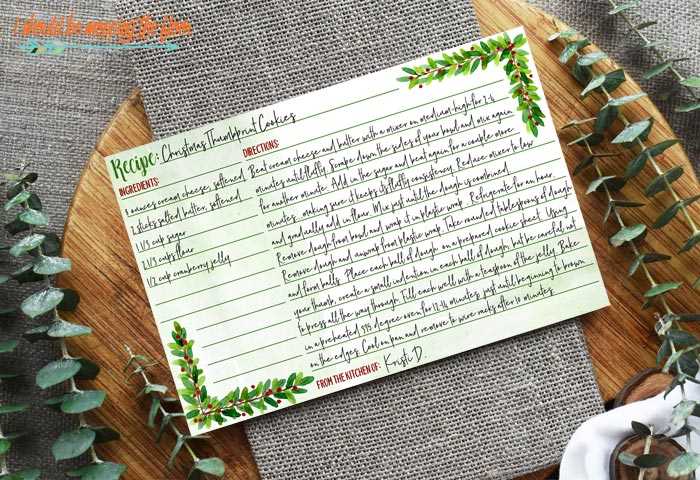 i should be mopping the floor
Recipe: Christmas Thumbprint Cookies
INGREDIENTS:
8 ounces cream cheese, softened
2 sticks salted butter, softened
1 1/3 cup sugar
2 1/3 cups flour
1/2 cup cranberry jelly
DIRECTIONS:
Beat cream cheese and butter with a mixer on medium-high for 2-4
minutes until fluffy. Scrape down the sides of your bowl and mix again
for another minute. Add in the sugar and beat again for a couple more
minutes, making sure it keeps its fluffy consistency. Reduce mixer to low
and gradually add in flour. Mix just until the dough is combined.
Remove dough from bowl and wrap it in plastic wrap. Refrigerate for an hour.
Remove dough and unwrap from plastic wrap. Take rounded tablespoons of dough
and form balls. Place each ball of dough on a prepared cookie sheet. Using
your thumb, create a small indention in each ball of dough, but be careful not
to press all the way through. Fill each well with a teaspoon of the jelly. Bake
in a preheated 375 degree oven for 12-14 minutes, just until beginning to brown
on the edges. Cool on pan and remove to wire racks after 10 minutes.
FROM THE KITCHEN OF: Kristi D.